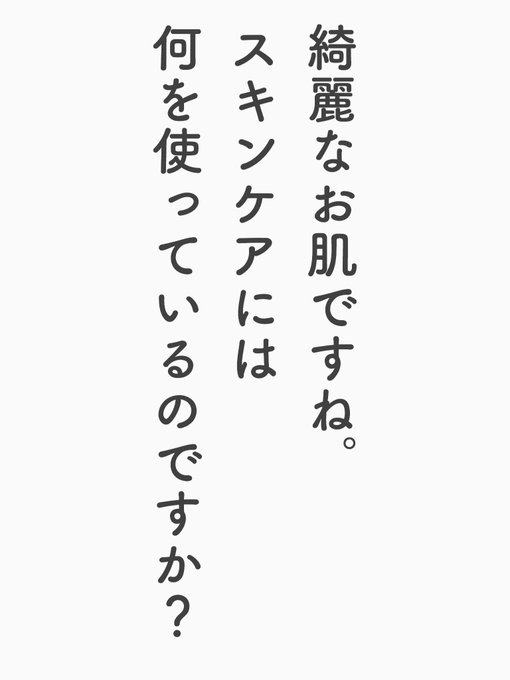 綺麗なお肌ですね。
スキンケアには
何を使っているのですか？